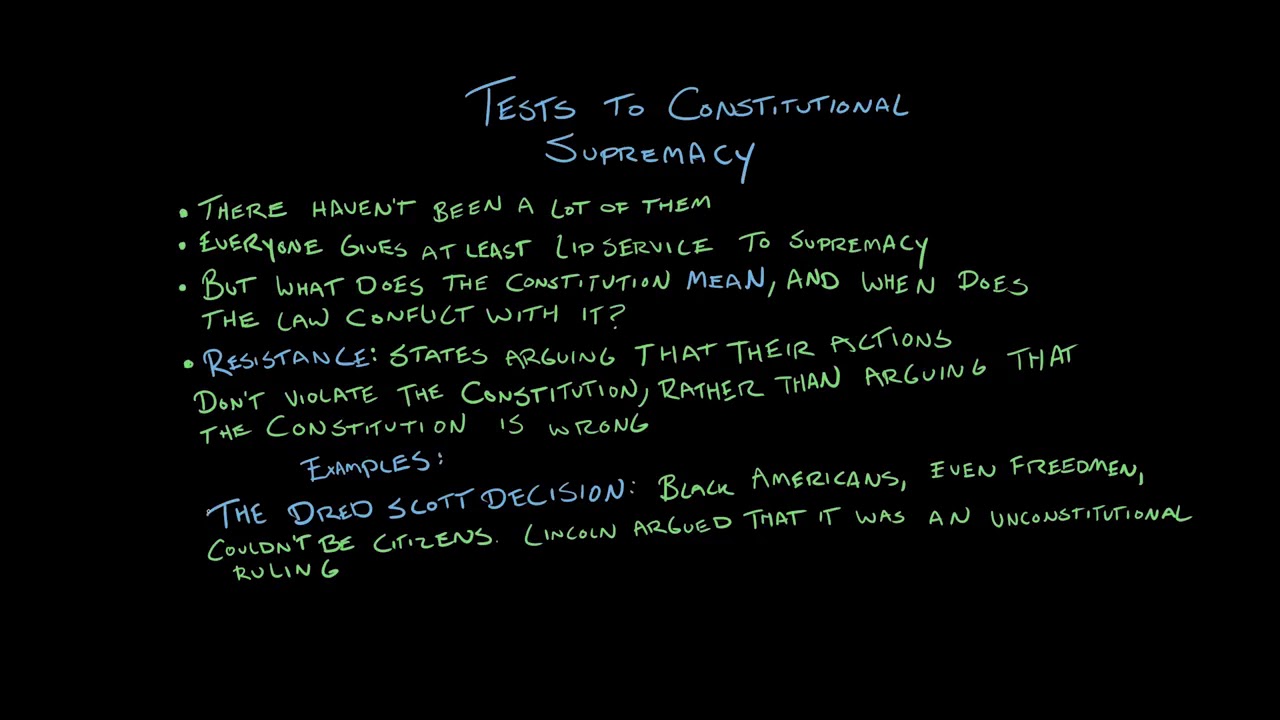 TESTS TO CONSTITUTIONAL
SUPREMACY
• THERE HAVEN'T BEEN A LOT OF THEM
• EVERYONE GIVES AT LEAST LIP SERVICE TO SUPREMACY
• BUT WHAT DOES THE CONSTITUTION MEAN, AND WHEN DOES
THE LAW CONFLICT WITH IT?
• RESISTANCE: STATES ARGUING THAT THEIR ACTIONS
DON'T VIOLATE THE CONSTITUTION, RATHER THAN ARGUING THAT
THE CONSTITUTION IS WRONG
EXAMPLES:
THE DRED SCOTT DECISION: BLACK AMERICANS, EVEN FREEDMEN,
COULDN'T BE CITIZENS. LINCOLN ARGUED THAT IT WAS AN UNCONSTITUTIONAL
RULING